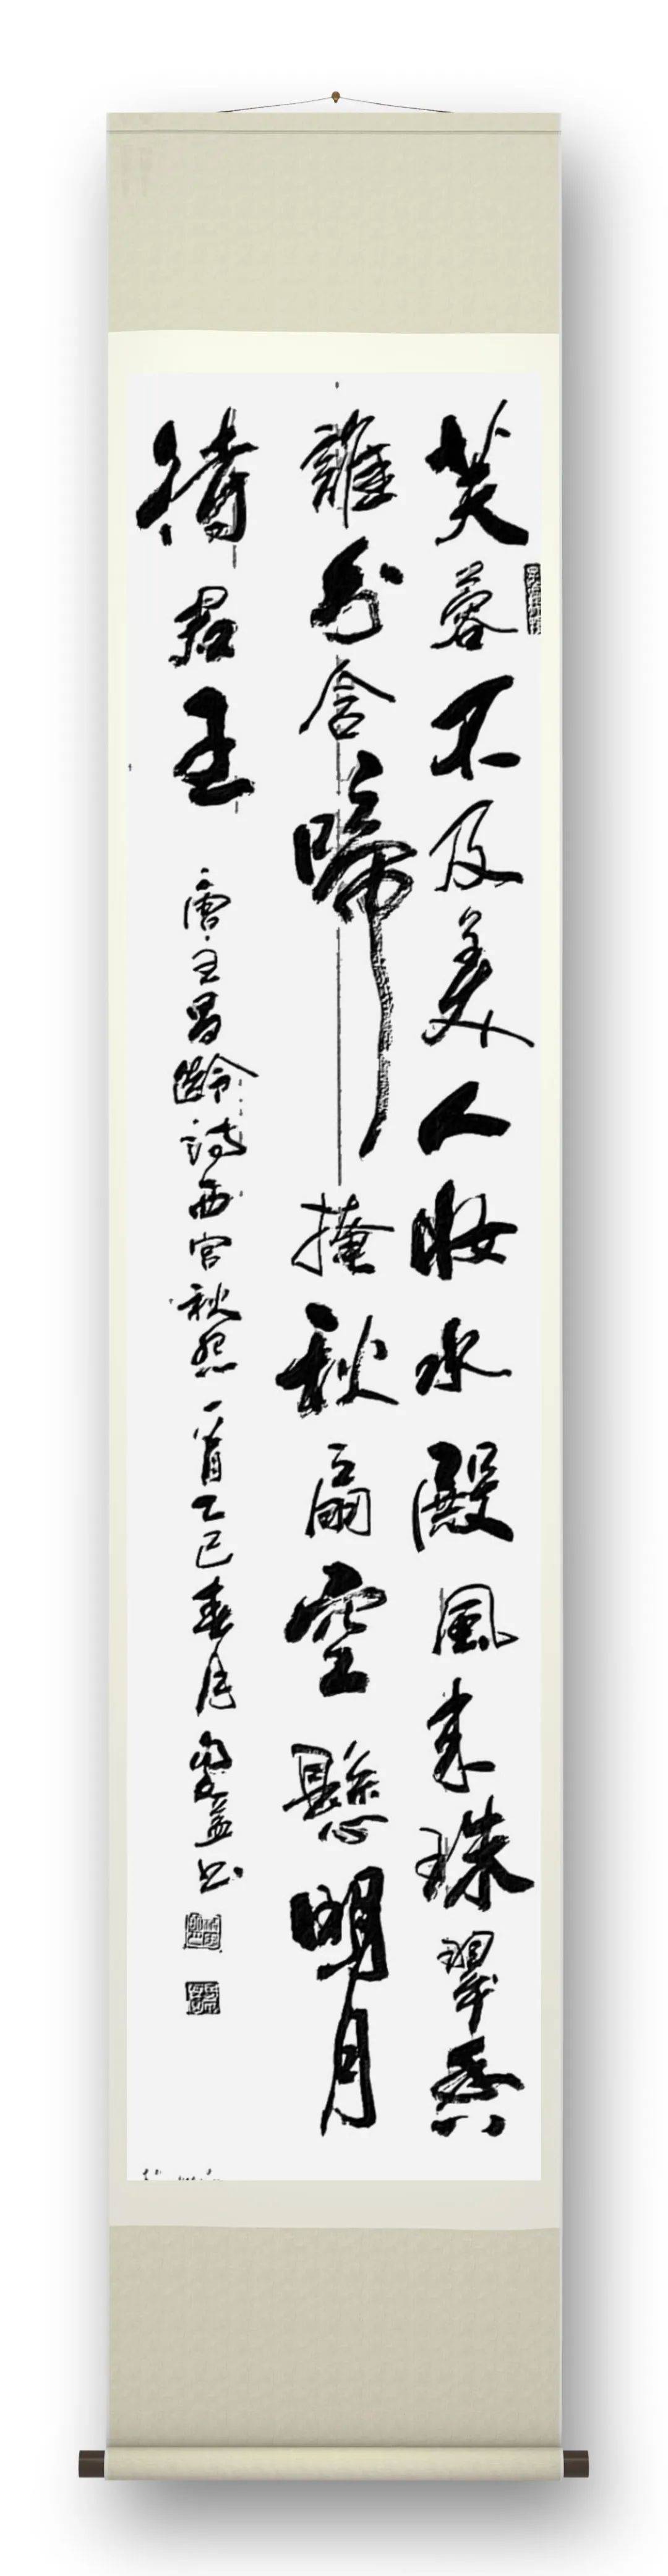 芙蓉不及美人妝水殿風来珠翠香
誰分含啼掩秋扇空懸明月
待君王
唐王昌齡詩西宮秋怨一首乙巳春月益书